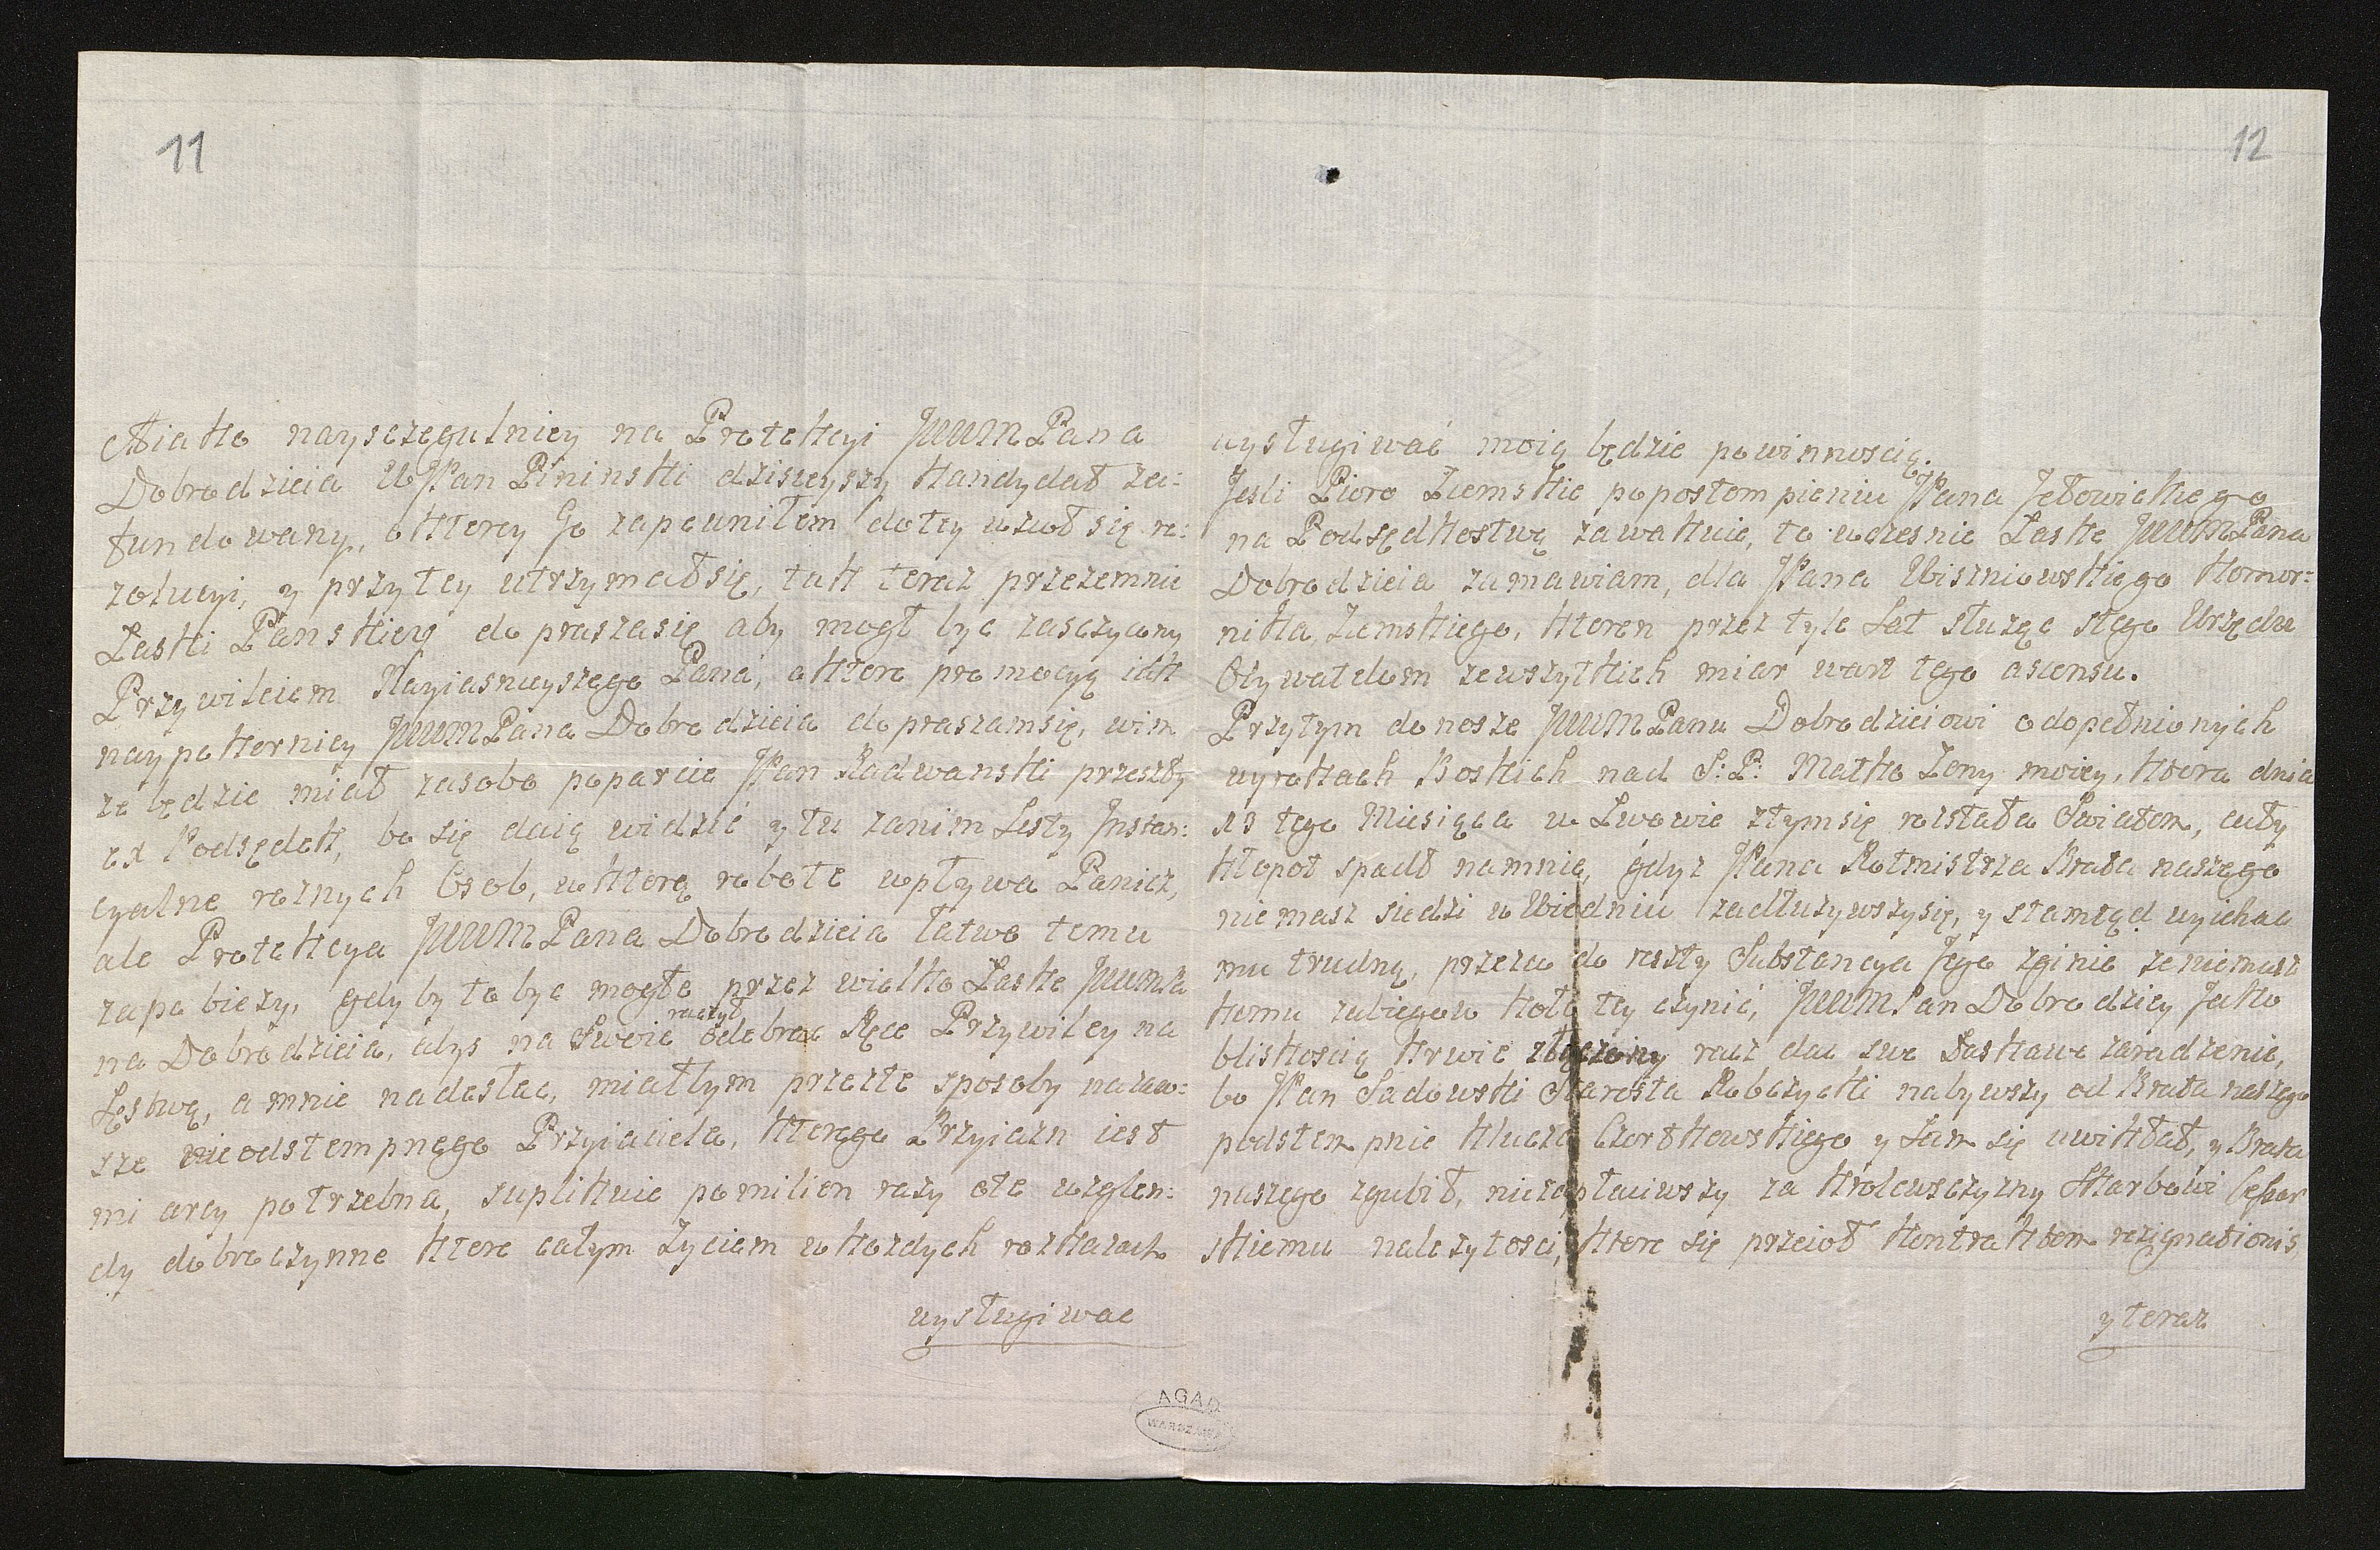 11
A Jako nayszczegulniey na Protekcyi JWWM Pana
Dobrodzieia WJPan Pininski dzisieyszy Kandydat za:
fundowany, o ktorey Go zapewniłem do tey wzioł się re:
zolucyi, y przy tey utrzymał się, tak teraz przezemnie
Łaski Panskiey do prasza się aby mogł byc zasczycony
Przywileiem Nayiasnieyszego Pana, o ktore promocyą iak
naypokorniey JWWM Pana Dobrodzieia do praszam się, wim
ze będzie miał zasobo poparcie JPan Radwanski przeszły
ex Podsędek, bo się daią widzieć y tu zanim Listy Instan:
cyalne roznych Osob, w ktorą robote wpływa Panicz,
ale Protekcya JWWM Pana Dobrodzieia łatwo temu
zapo bieży, gdyby to byc mogło przez wielko Łaske JWWMPa
na Dobrodzieia, abys na Swoie raczył odebrac Ręce Przywiley na
Łęstwą, a mnie nadesłac, miałbym przezte sposoby na zaw:
sze nieodstempnego Przyiaciela, ktorego Przyjazn iest
mi arcy potrzebna, suplikuie po milion razy o te wzglen:
dy dobroczynne ktore całym Zyciem w kazdych rozkazach
wysługiwac
12
wysługiwać moią będzie powinnoscią.
Jesli Pioro Ziemskie po postompieniu JPana Jełowickiego
na Podsędkostwą zawakuie, to wczesnie Łaske JWWM Pana
Dobrodzieia zamawiam, dla JPana Wiszniowskiego Komor:
nika Ziemskiego, ktoren przez tyle Lat służąc stego Urzędu
Obywatelom zewszytkich miar wart tego ascensu.
Przytym donosze JWWM Panu Dobrodzieiowi o dopełnionych
wyrokach Boskich nad S: P: Matko Zony moiey, ktora dnia
13 tego Miesiąca w Lwowie ztym się rozstała Swiatem, cały
kłopot spadł na mnie, gdyz JPana Rotmistrza Brata naszego
nie masz siedzi w Wiedniu zadłuzywszysię, y stamtąd wyiehac
mu trudną, przezco do reszty Substancya Jego zginie ze niemasz
komu zabiegow koło tey czynić, JWWM Pan Dobrodziey Jako
bliskoscią krwie złączony racz dac swe Łaskawe zaradzenie,
bo JPan Sadowski Starosta Robczycki nabywszy od Brata naszego
podstempnie klucza Czortkowskiego y Sam się uwikłał, y Brata
naszego zgubił, niezapłaciwszy za Krolewsczyzny Skarbowi Cesar
skiemu nalezytosci, ktore się przeioł Kontraktem resignationis,
y teraz
AGAD
WARSZAWA